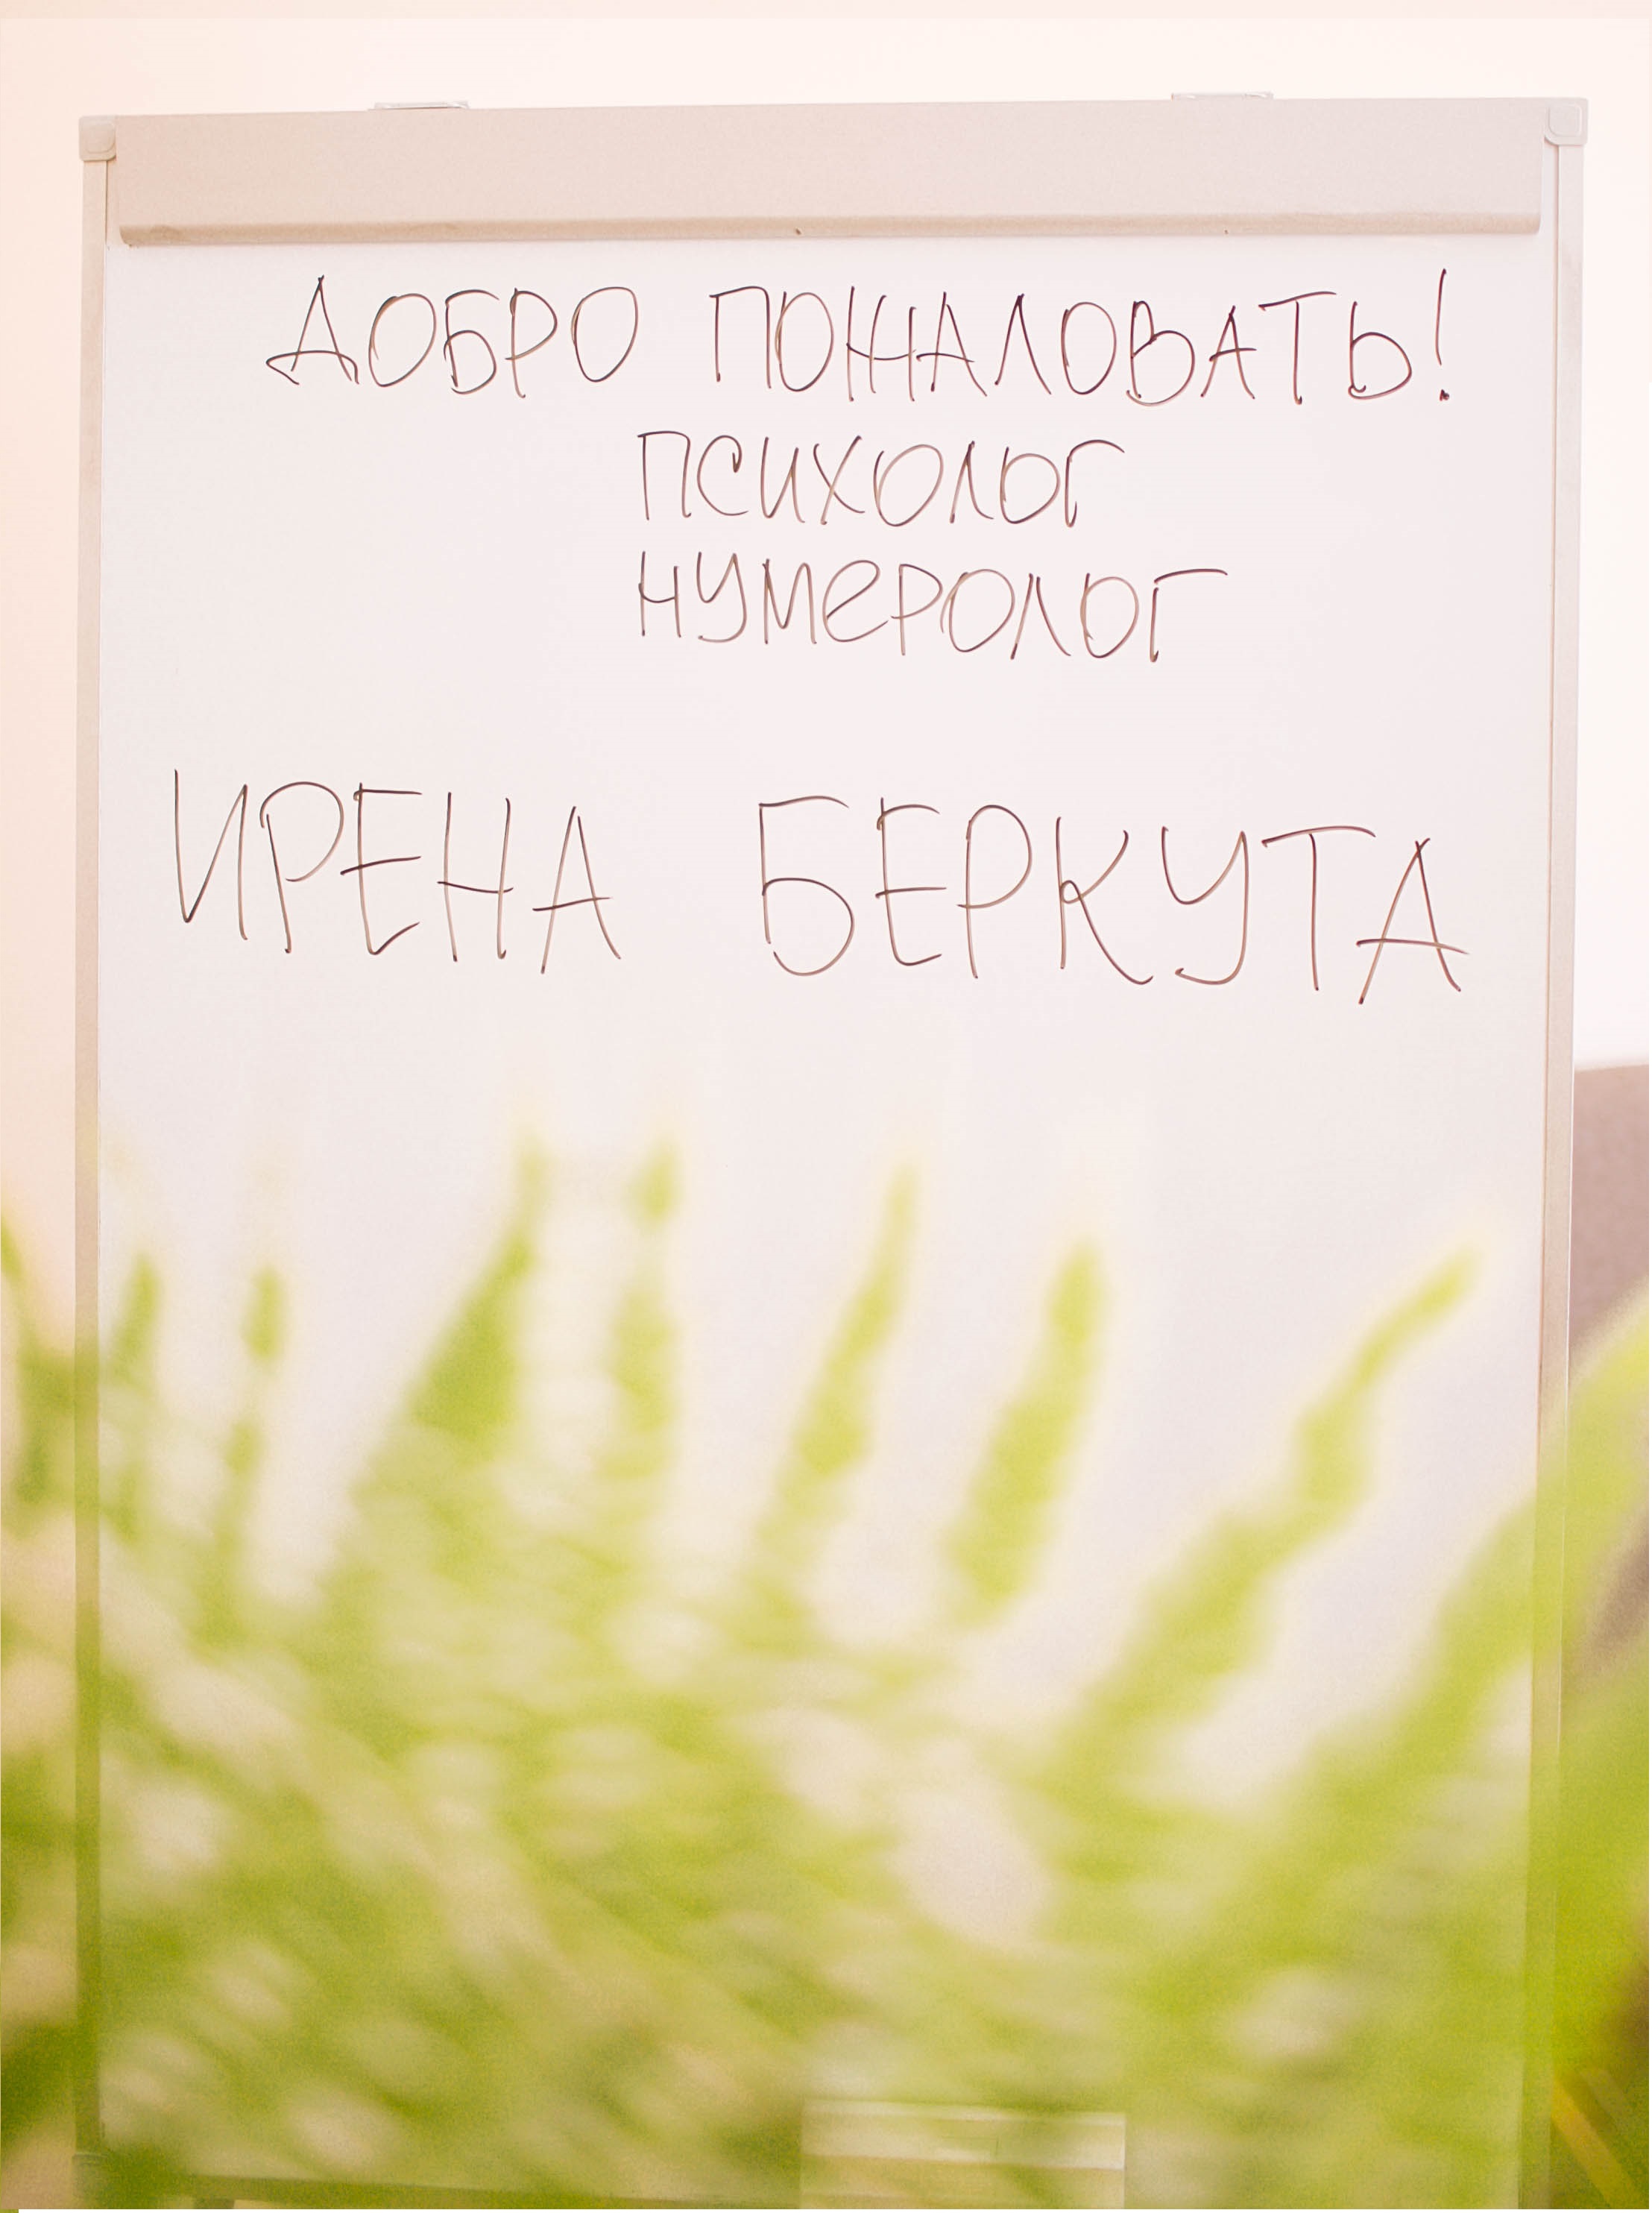 ДОБРО ПОЖАЛОВАТЬ!
ПСИХОЛОГ
НУМЕРОЛОГ
ИРЕНА БЕРКУТА